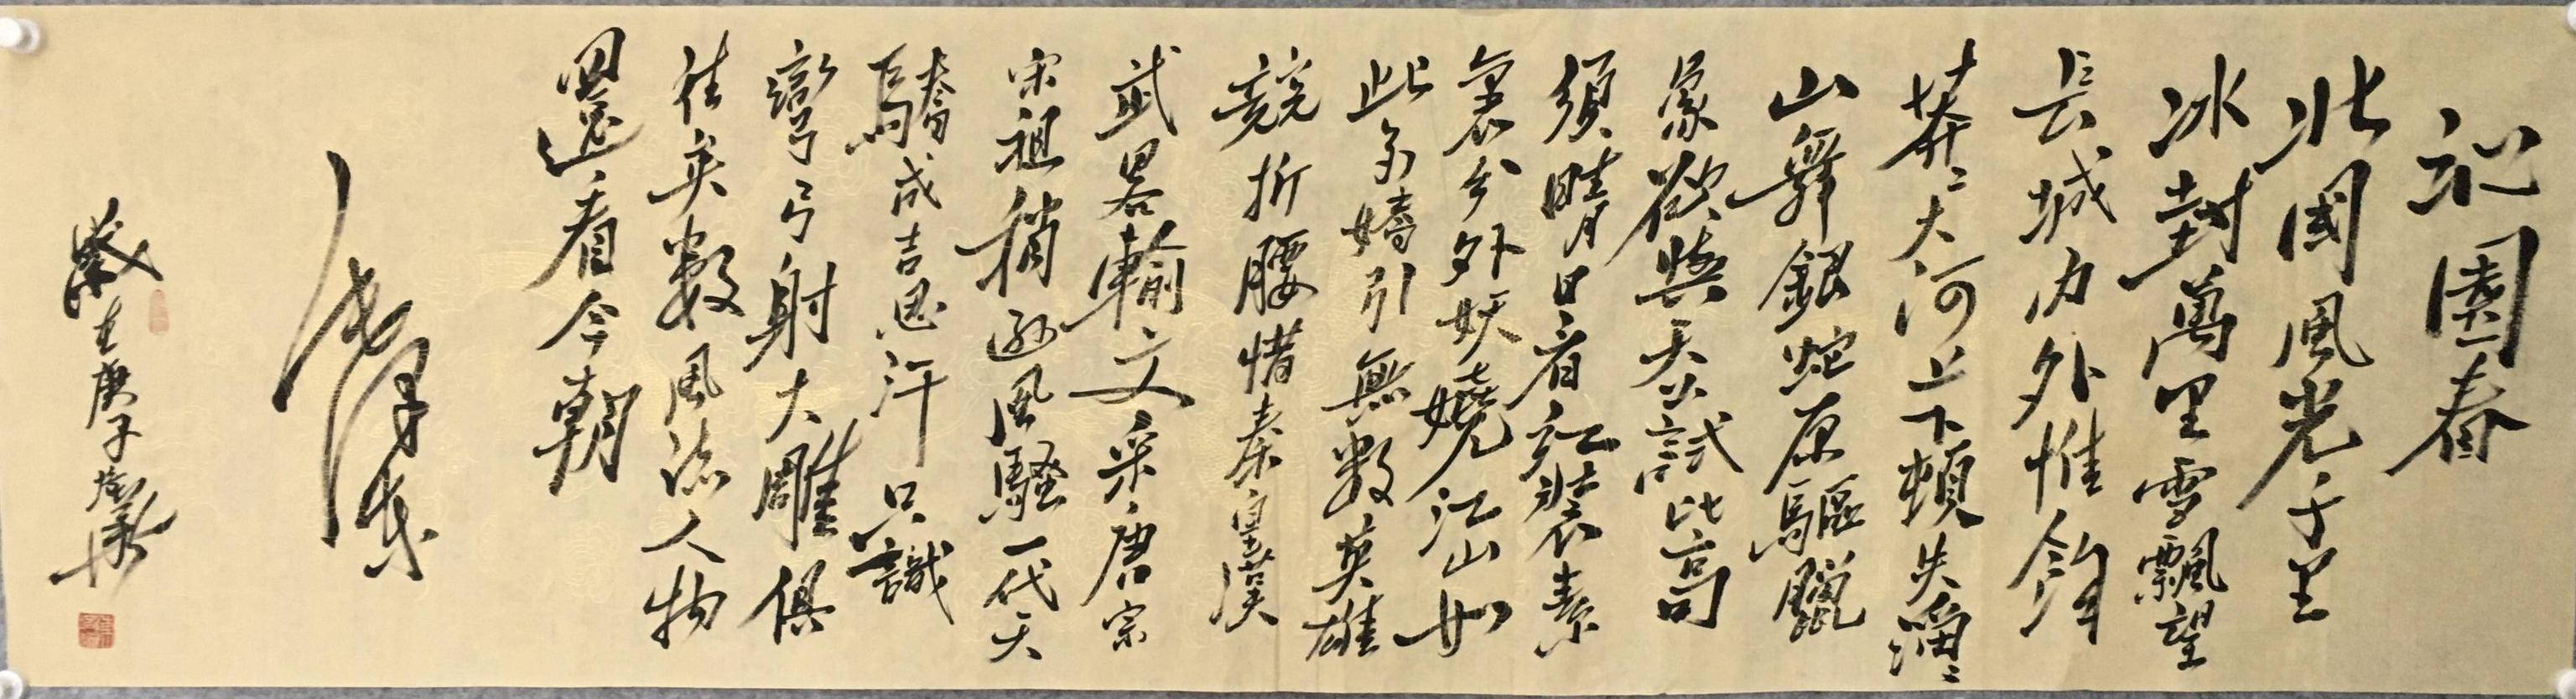 沁園春
北國風光千里
冰封萬里雪飄望
長城内外惟餘
莽〻大河上下頓失滔〻
山舞銀蛇原驅臘
象欲與天公試比高
須晴日看紅裝素
裹分外妖嬈江山如
此多嬌引無數英雄
競折腰惜秦皇漢
武畧輸文采唐宗
宋祖稍遜風騷一代天
驕成吉思汗只識
彎弓射大雕俱
往矣數風流人物
還看今朝
歲在庚子